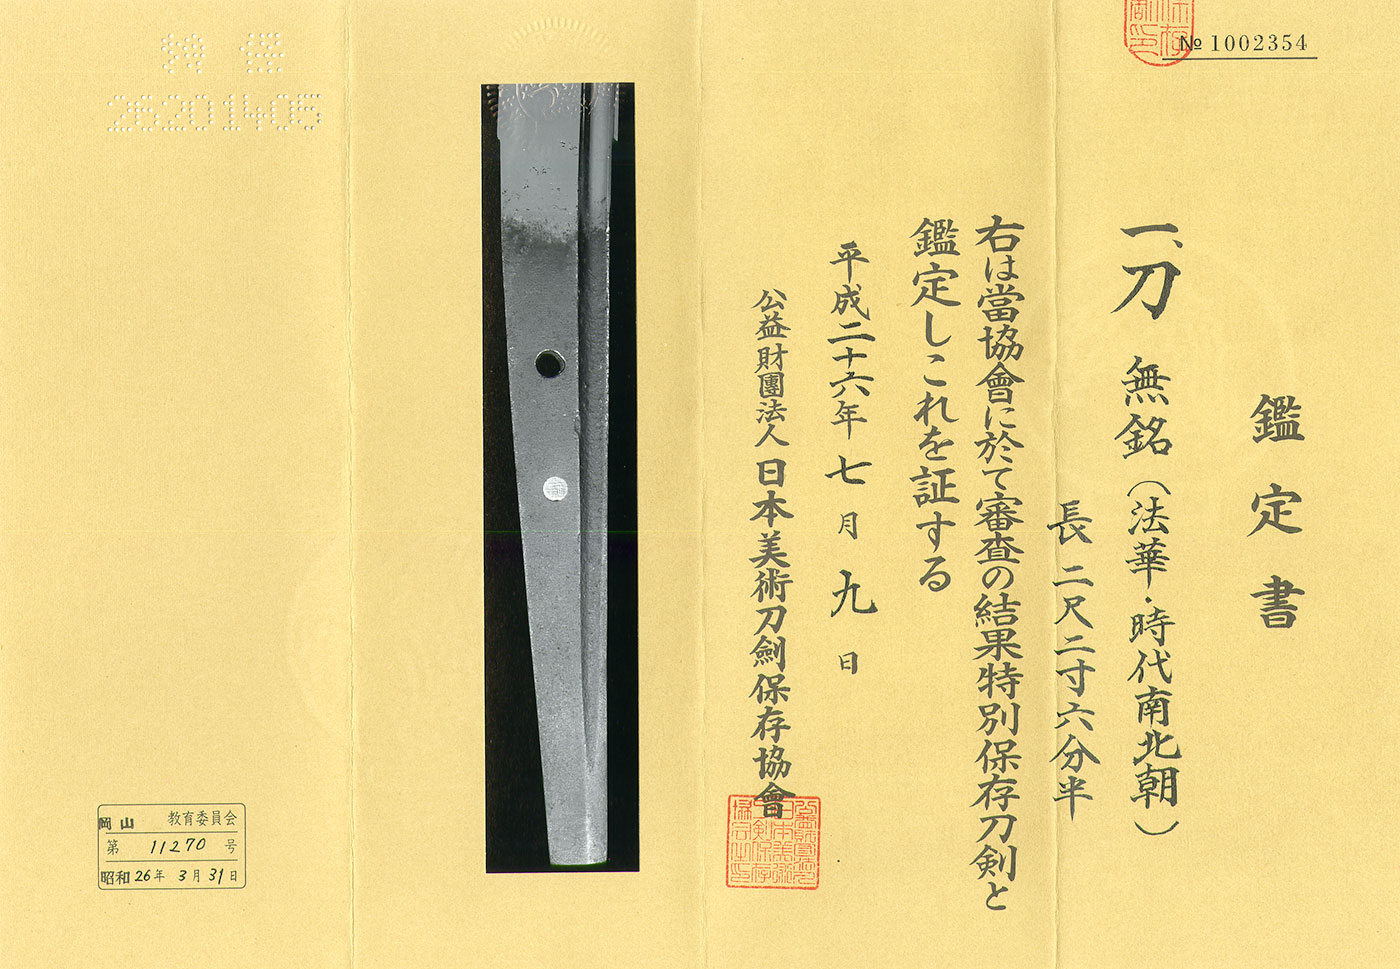 № 1002354
鑑定書
一、刀 無銘（法華・時代南北朝）
長二尺二寸六分半
右は當協會に於て審査の結果特別保存刀剣と
鑑定しこれを証する
平成二十六年七月九日
公益財團法人日本美術刀劍保存協會
26201405
岡山 教育委員会
第 11270 号
昭和26年 3月 31日